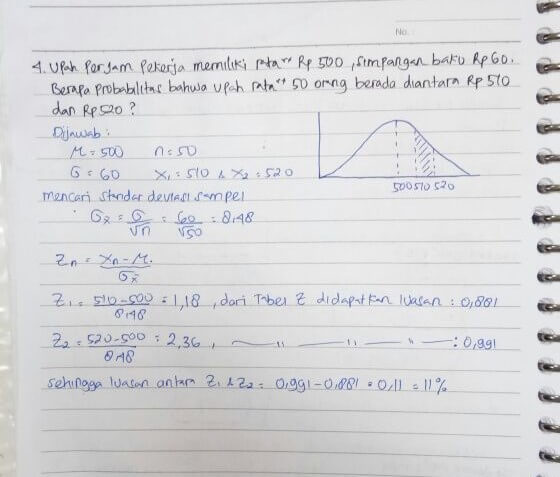 No.
4. Upah perjam pekerja memiliki rata" Rp 500, simpangan baku Rp 60.
Berapa probabilitas bahwa upah rata" 50 orang berada diantara Rp 510
dan Rp 520 ?
Dijawab :
M = 500 n = 50
σ = 60 x₁ = 510 & x₂ = 520
500 510 520
mencari standar deviasi sampel
σx̄ = σ/√n = 60/√50 = 8,48
Zn = xn - M / σx̄
Z₁ = 510-500 / 8,48 = 1,18 , dari Tabel Z didapatkan luasan : 0,881
Z₂ = 520-500 / 8,48 = 2,36 , — " — " — " — : 0,991
sehingga luasan antara Z₁ & Z₂ = 0,991 - 0,881 = 0,11 = 11%